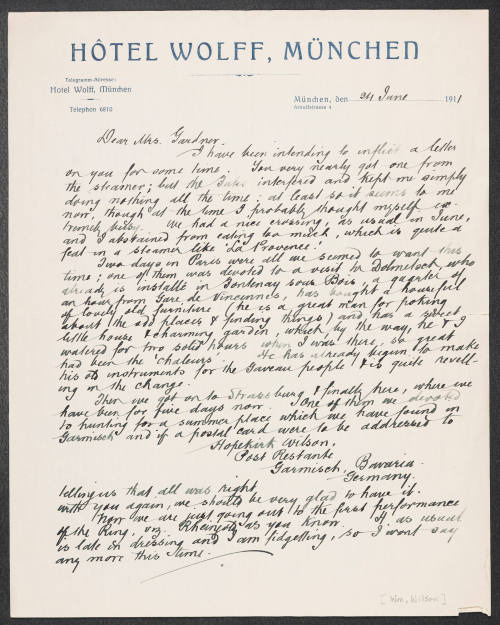 HÔTEL WOLFF, MÜNCHEN
Telegramm-Adresse:
Hotel Wolff, München
Telephon 6810
München, den 24 June 1911
Arnulfstrasse 4
Dear Mrs. Gardner.
I have been intending to inflict a letter
on you for some time. You very nearly got one from
the steamer; but the interfered and kept me simply
doing nothing all the time; at least so it seems to me
now, though at the time I probably thought myself ex-
tremely busy. We had a nice crossing, as usual in June,
and I abstained from eating too much, which is quite a
feat in a steamer like 'La Provence'!
Two days in Paris were all we seemed to want this
time; one of them was devoted to a visit to Dolmetsch, who
already is installé in Fontenay sous Bois, a quarter of
an hour from Gare de Vincennes, has bought a houseful
of lovely old furniture (he is a great man for poking
about the old places & finding things) and has a sweet
little house & charming garden, which by the way, he & I
watered for two solid hours when I was there, so great
had been the 'chaleurs'. He has already begun to make
his instruments for the Gaveau people & is quite revell-
ing in the change.
Then we got on to Strassburg & finally here, where we
have been for five days now. One of them we devoted
to hunting for a summer place which we have found in
Garmisch and if a postal card were to be addressed to
Hopekirk Wilson.
Post Restante
Garmisch, Bavaria.
Germany.
telling us that all was right
with you again, we should be very glad to have it.
Now we are just going out to the first performance
of the Ring, viz. Rheingold as you know. H. as usual
is late in dressing and I am fidgetting, so I wont say
any more this time.
[Wm. Wilson]